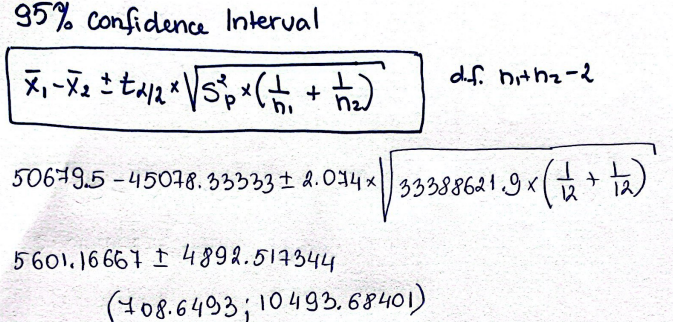 95% Confidence Interval
x̄₁-x̄₂ ± tα/2 × √(S²p × (1/n₁ + 1/n₂)) d.f. n₁+n₂-2
50679.5 - 45078.33333 ± 2.074 × √(33388621.9 × (1/12 + 1/12))
5601.16667 ± 4892.517344
(708.6493; 10493.68401)